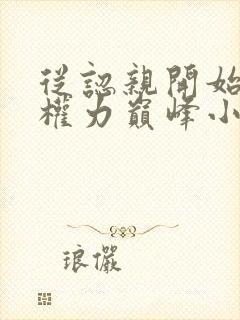 從認親開始
權力巔峰小
琅儼